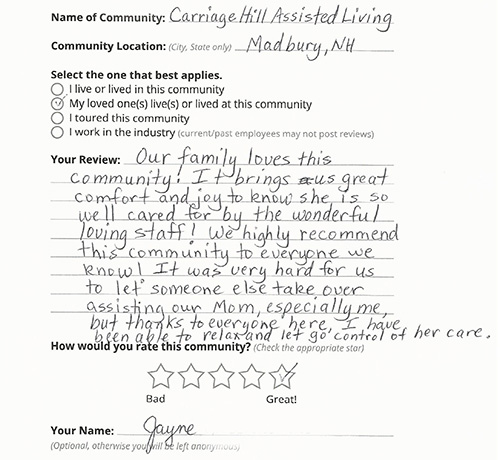 Name of Community: Carriage Hill Assisted Living
Community Location: (City, State only) Madbury, NH
Select the one that best applies.
I live or lived in this community
My loved one(s) live(s) or lived at this community
I toured this community
I work in the industry (current/past employees may not post reviews)
Your Review: Our family loves this
community! It brings us great
comfort and joy to know she is so
well cared for by the wonderful
loving staff! We highly recommend
this community to everyone we
know! It was very hard for us
to let someone else take over
assisting our Mom, especially me,
but thanks to everyone here, I have
been able to relax and let go control of her care.
How would you rate this community? (Check the appropriate star)
Bad Great!
Your Name: Jayne
(Optional, otherwise you will be left anonymous)